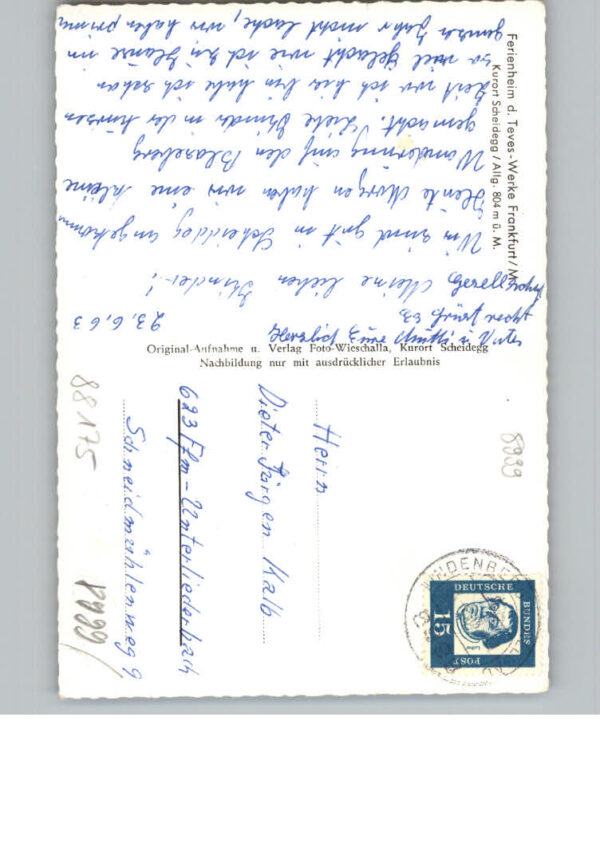 Ferienheim d. Teves-Werke Frankfurt/M.
Kurort Scheidegg / Allg. 804 m ü. M.
23.6.63
Meine lieben Kinder!
Wir sind gut in Scheidegg angekommen
Heute Morgen haben wir eine kleine
Wanderung auf den Blasenberg
gemacht. Liebe Kinder in der kurzen
Zeit wo ich hier bin habe ich schon
so viel gelacht wie ich zu Hause im
ganzen Jahr nicht lache, wir haben prima
Gesellschaft
Herzlich
Original-Aufnahme u. Verlag Foto-Wieschalla, Kurort Scheidegg
Nachbildung nur mit ausdrücklicher Erlaubnis
Herrn
Dieter Jürgen Kalb
623 Ffm-Unterliederbach
Schneidmühlenweg 9
88175
8999
8999
DEUTSCHE
BUNDES
POST
15
Luther